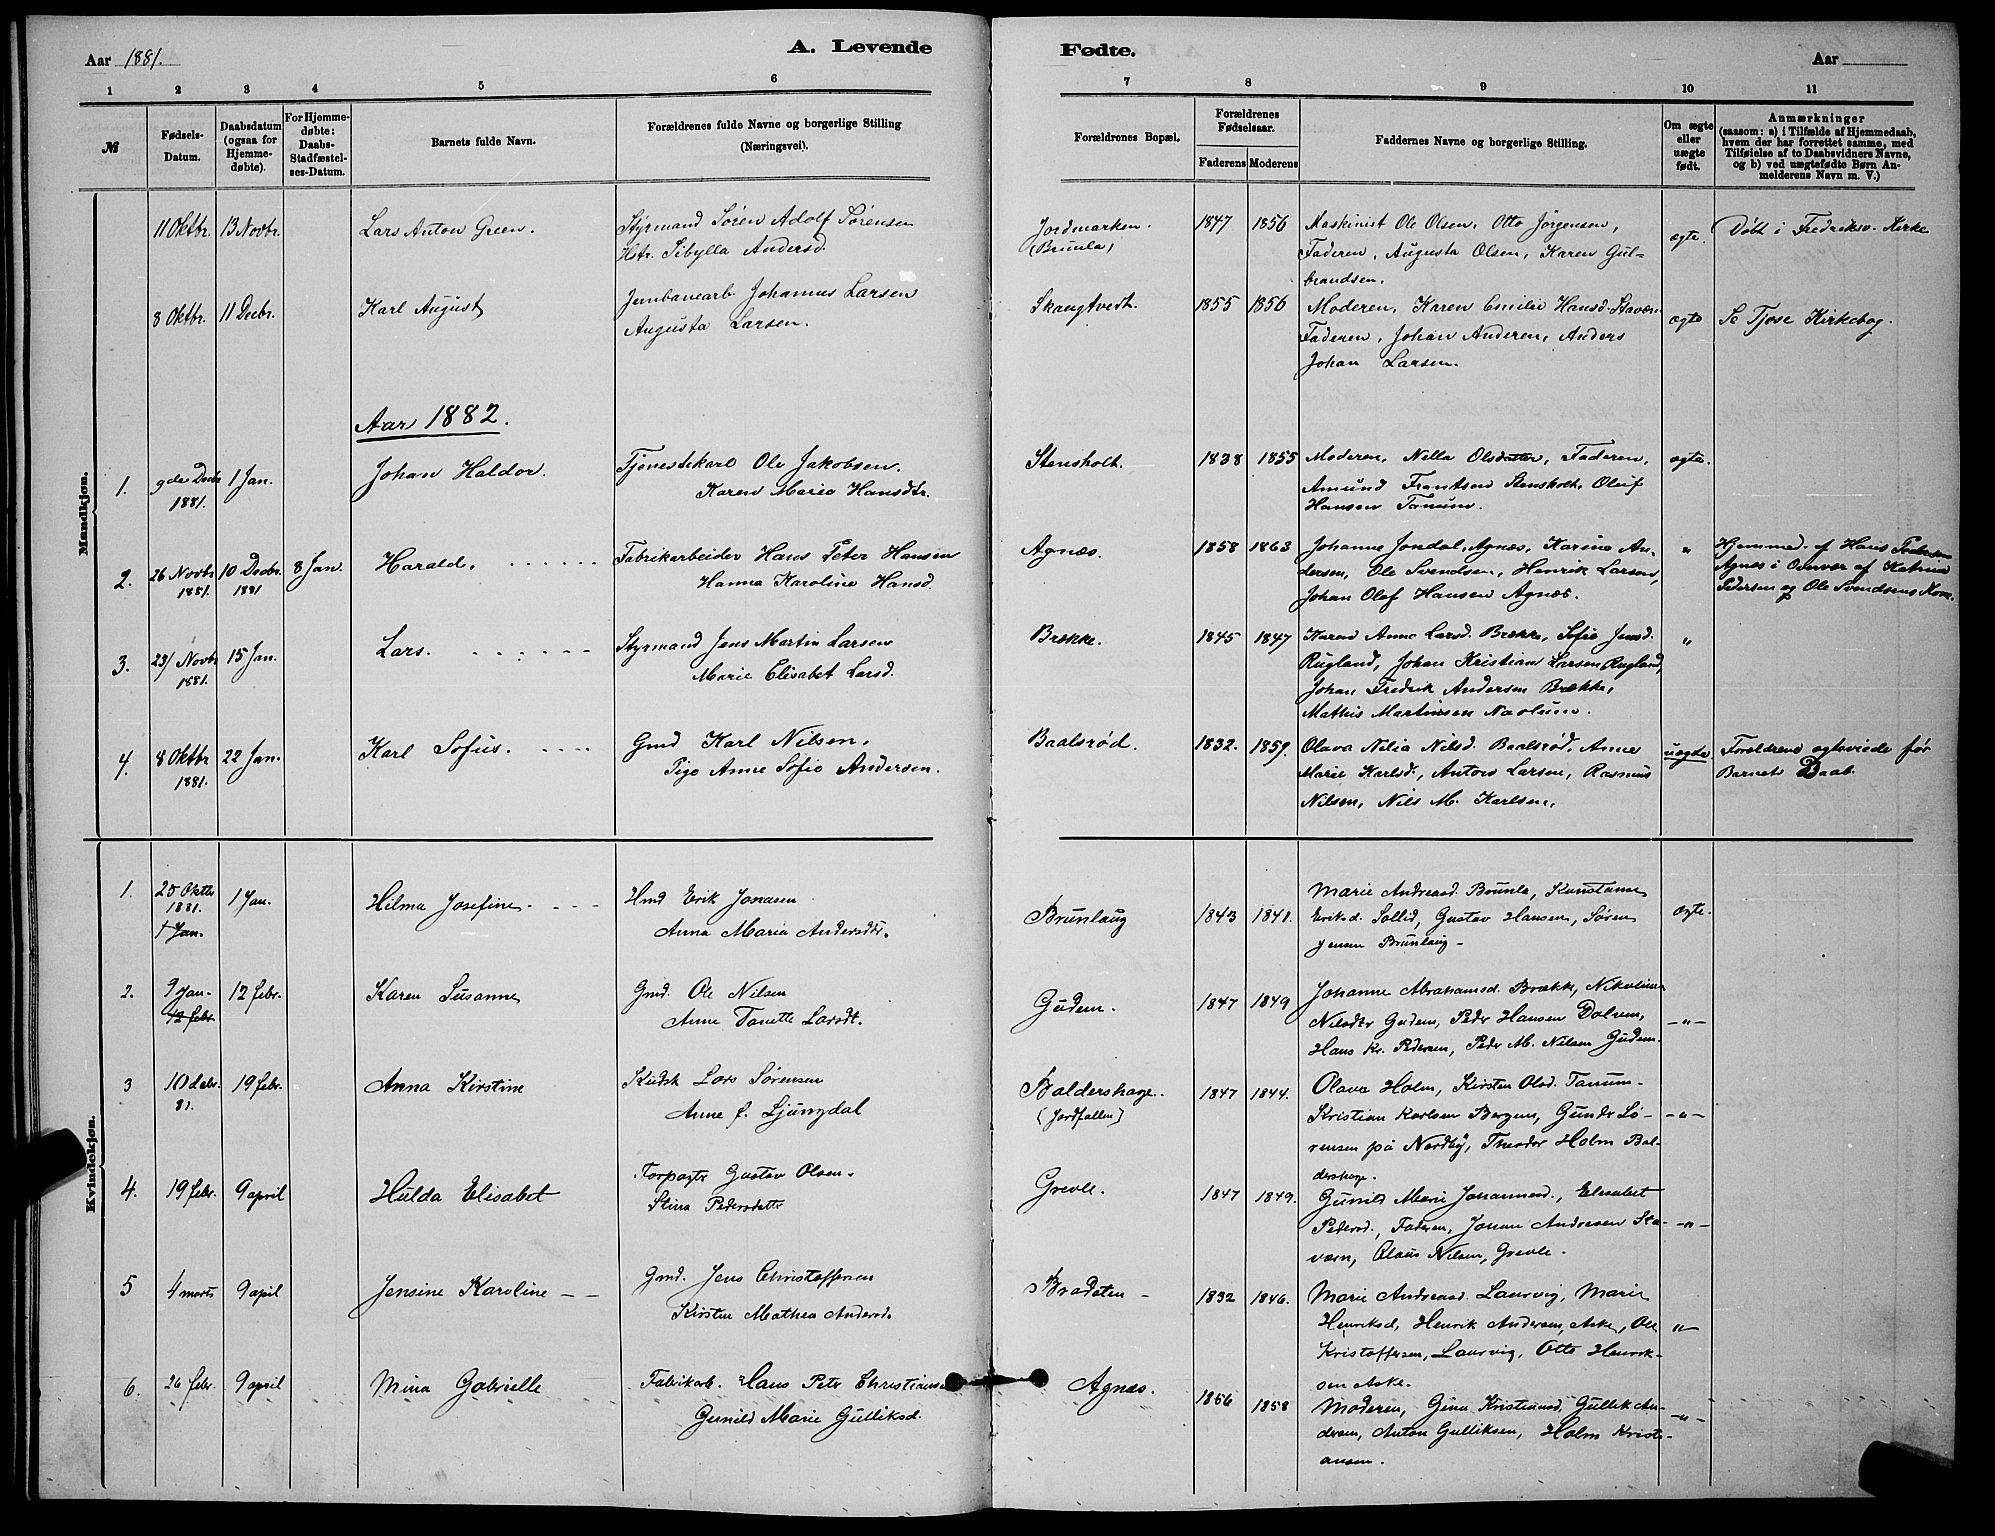 A. Levende
Fødte.
Aar 1881.
Aar
1 2 3 4 5 6 7 8 9 10 11
№
Fødsels-
Datum.
Daabsdatum
(ogsaa for
Hjemme-
døbte).
For Hjemme-
døbte:
Daabs-
Stadfæstel-
ses-Datum.
Barnets fulde Navn.
Forældrenes fulde Navne og borgerlige Stilling
(Næringsvei).
Forældrenes Bopæl.
Forældrenes
Fødselsaar.
Faderens Moderens
Faddernes Navne og borgerlige Stilling.
Om ægte
eller
uægte
født.
Anmærkninger
(saasom: a) i Tilfælde af Hjemmedaab,
hvem der har forrettet samme, med
Tilføielse af to Daabsvidners Navne,
og b) ved uægtefødte Børn An-
melderens Navn m. V.)
Mandkjøn.
11 Oktbr. 13 Novbr. Lars Anton Green.
Styrmand Søren Adolf Sørensen
Htr. Sibylla Andersd.
Jordmarken.
(Brunla)
1847 1856
Maskinist Ole Olsen, Otto Jørgensen,
Faderen, Augusta Olsen, Karen Gul-
brandsen.
ægte.
Døbt i Fredriksv. Kirke
8 Oktbr. 11 Decbr. Karl August
Jernbanearb. Johannes Larsen
Augusta Larsen.
Skaugtvedt.
1855 1856
Moderen, Karen Emilie Hansd. Staværn
Faderen, Johan Anderen, Anders
Johan Larsen.
ægte
Se Tjose Kirkebog.
Aar 1882.
1. 9de Decbr 1 Jan. Johan Haldor.
1881.
Tjenestekarl Ole Jakobsen.
Karen Marie Hansdtr.
Stensholt.
1838 1855
Moderen, Nella Olsdatter, Faderen,
Amund Frantsen Stensholt, Oluf
Hansen Tanum.
ægte.
2. 26 Novbr 10 Decbr. 8 Jan. Harald.
1881. 1881
Fabrikarbeider Hans Peter Hansen
Hanna Karoline Hansd.
Agnæs.
1858 1863
Johanne Jondal, Agnæs, Karine An-
dersen, Ole Svendsen, Henrik Larsen,
Johan Olaf Hansen Agnæs.
"
Hjemmed. af Hans Pedersen
Agnæs i Overvær af Katrine
Pedersen og Ole Svendsens Kone.
3. 23/ Novbr 15 Jan. Lars.
1881.
Styrmand Jens Martin Larsen
Marie Elisabet Larsd.
Brække.
1845 1847
Karen Anne Larsd. Brække, Sofie Jensd.
Rugland, Johan Kristian Larsen Rugland,
Johan Fredrik Andersen Brække,
Mathis Martinsen Naolum.
"
4. 8 Oktbr 22 Jan. Karl Sofus.
1881.
Gmd Karl Nilsen,
Pige Anne Sofie Andersen.
Baalsrød.
1832. 1859.
Olava Nilia Nilsd. Baalsrød, Anne
Marie Karlsd., Anton Larsen, Rasmus
Nilsen, Nils M. Karlsen,
uægte.
Forældrene ægteviede før
Barnets Daab.
Kvindekjøn.
1. 25 Oktbr 1 Jan. Hilma Josefine.
1881.
1 Jan.
Hmd Erik Jonasen
Anna Maria Andersdtr.
Brunlaug
1843 1841.
Marie Andreasd. Brunla, Konstanse
Eriksd. Sollid, Gustav Hansen, Søren
Jensen Brunlaug -
ægte.
2. 9 Jan. 12 febr. Karen Susanne
12 febr.
Gmd. Ole Nilsen
Anne Tonette Larsdt.
Gudem.
1847 1849
Johanne Abrahamsd. Brække, Nikoline
Nilsdtr Gudem, Peder Hansen Dolven,
Hans Kr. Pedersen, Peder M. Nilsen Gudem.
-"-
3 10 decbr. 19 febr. Anna Kirstine
81.
Kudsk Lars Sørensen
Anne f. Ljungdal
Baldershage.
(Jordfallen)
1847 1844.
Olava Holm, Kirsten Olsd. Tanum
Kristian Karlsen Bergen, Gunder Sø-
rensen på Nordby, Theodor Holm Bal-
dershage.
-"-
4. 19 febr. 9 april Hulda Elisabet
Forpagtr Gustav Olsen.
Stina Pedersdatter
Grevle.
1847 1849.
Gunild Marie Johannesd., Elisabet
Pedersd., Faderen, Johan Andresen Sta-
værn, Olaus Nilsen, Grevle.
-"-
5 4 marts 9 april Jensine Karoline - -
Gmd. Jens Christoffersen
Kirsten Mathea Andersd.
Bradsten -
1832 1846.
Marie Andreasd. Laurvig, Marie
Henriksd, Henrik Andersen, Aske, Ole
Kristoffersen, Laurvig, Otto Henrik-
sen Aske.
"
6. 26 febr. 9 april Mina Gabrielle
Fabrikarb. Hans Petr Christiansen
Gunild Marie Gulliksd.
Agnæs.
1856 1858
Moderen, Gina Kristiansd, Gullik An-
dersen, Anton Gulliksen, Holm Kristi-
ansen.
-"-